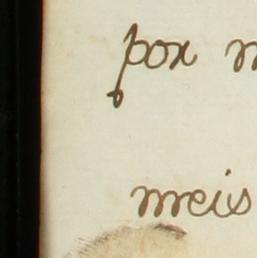 por
meis